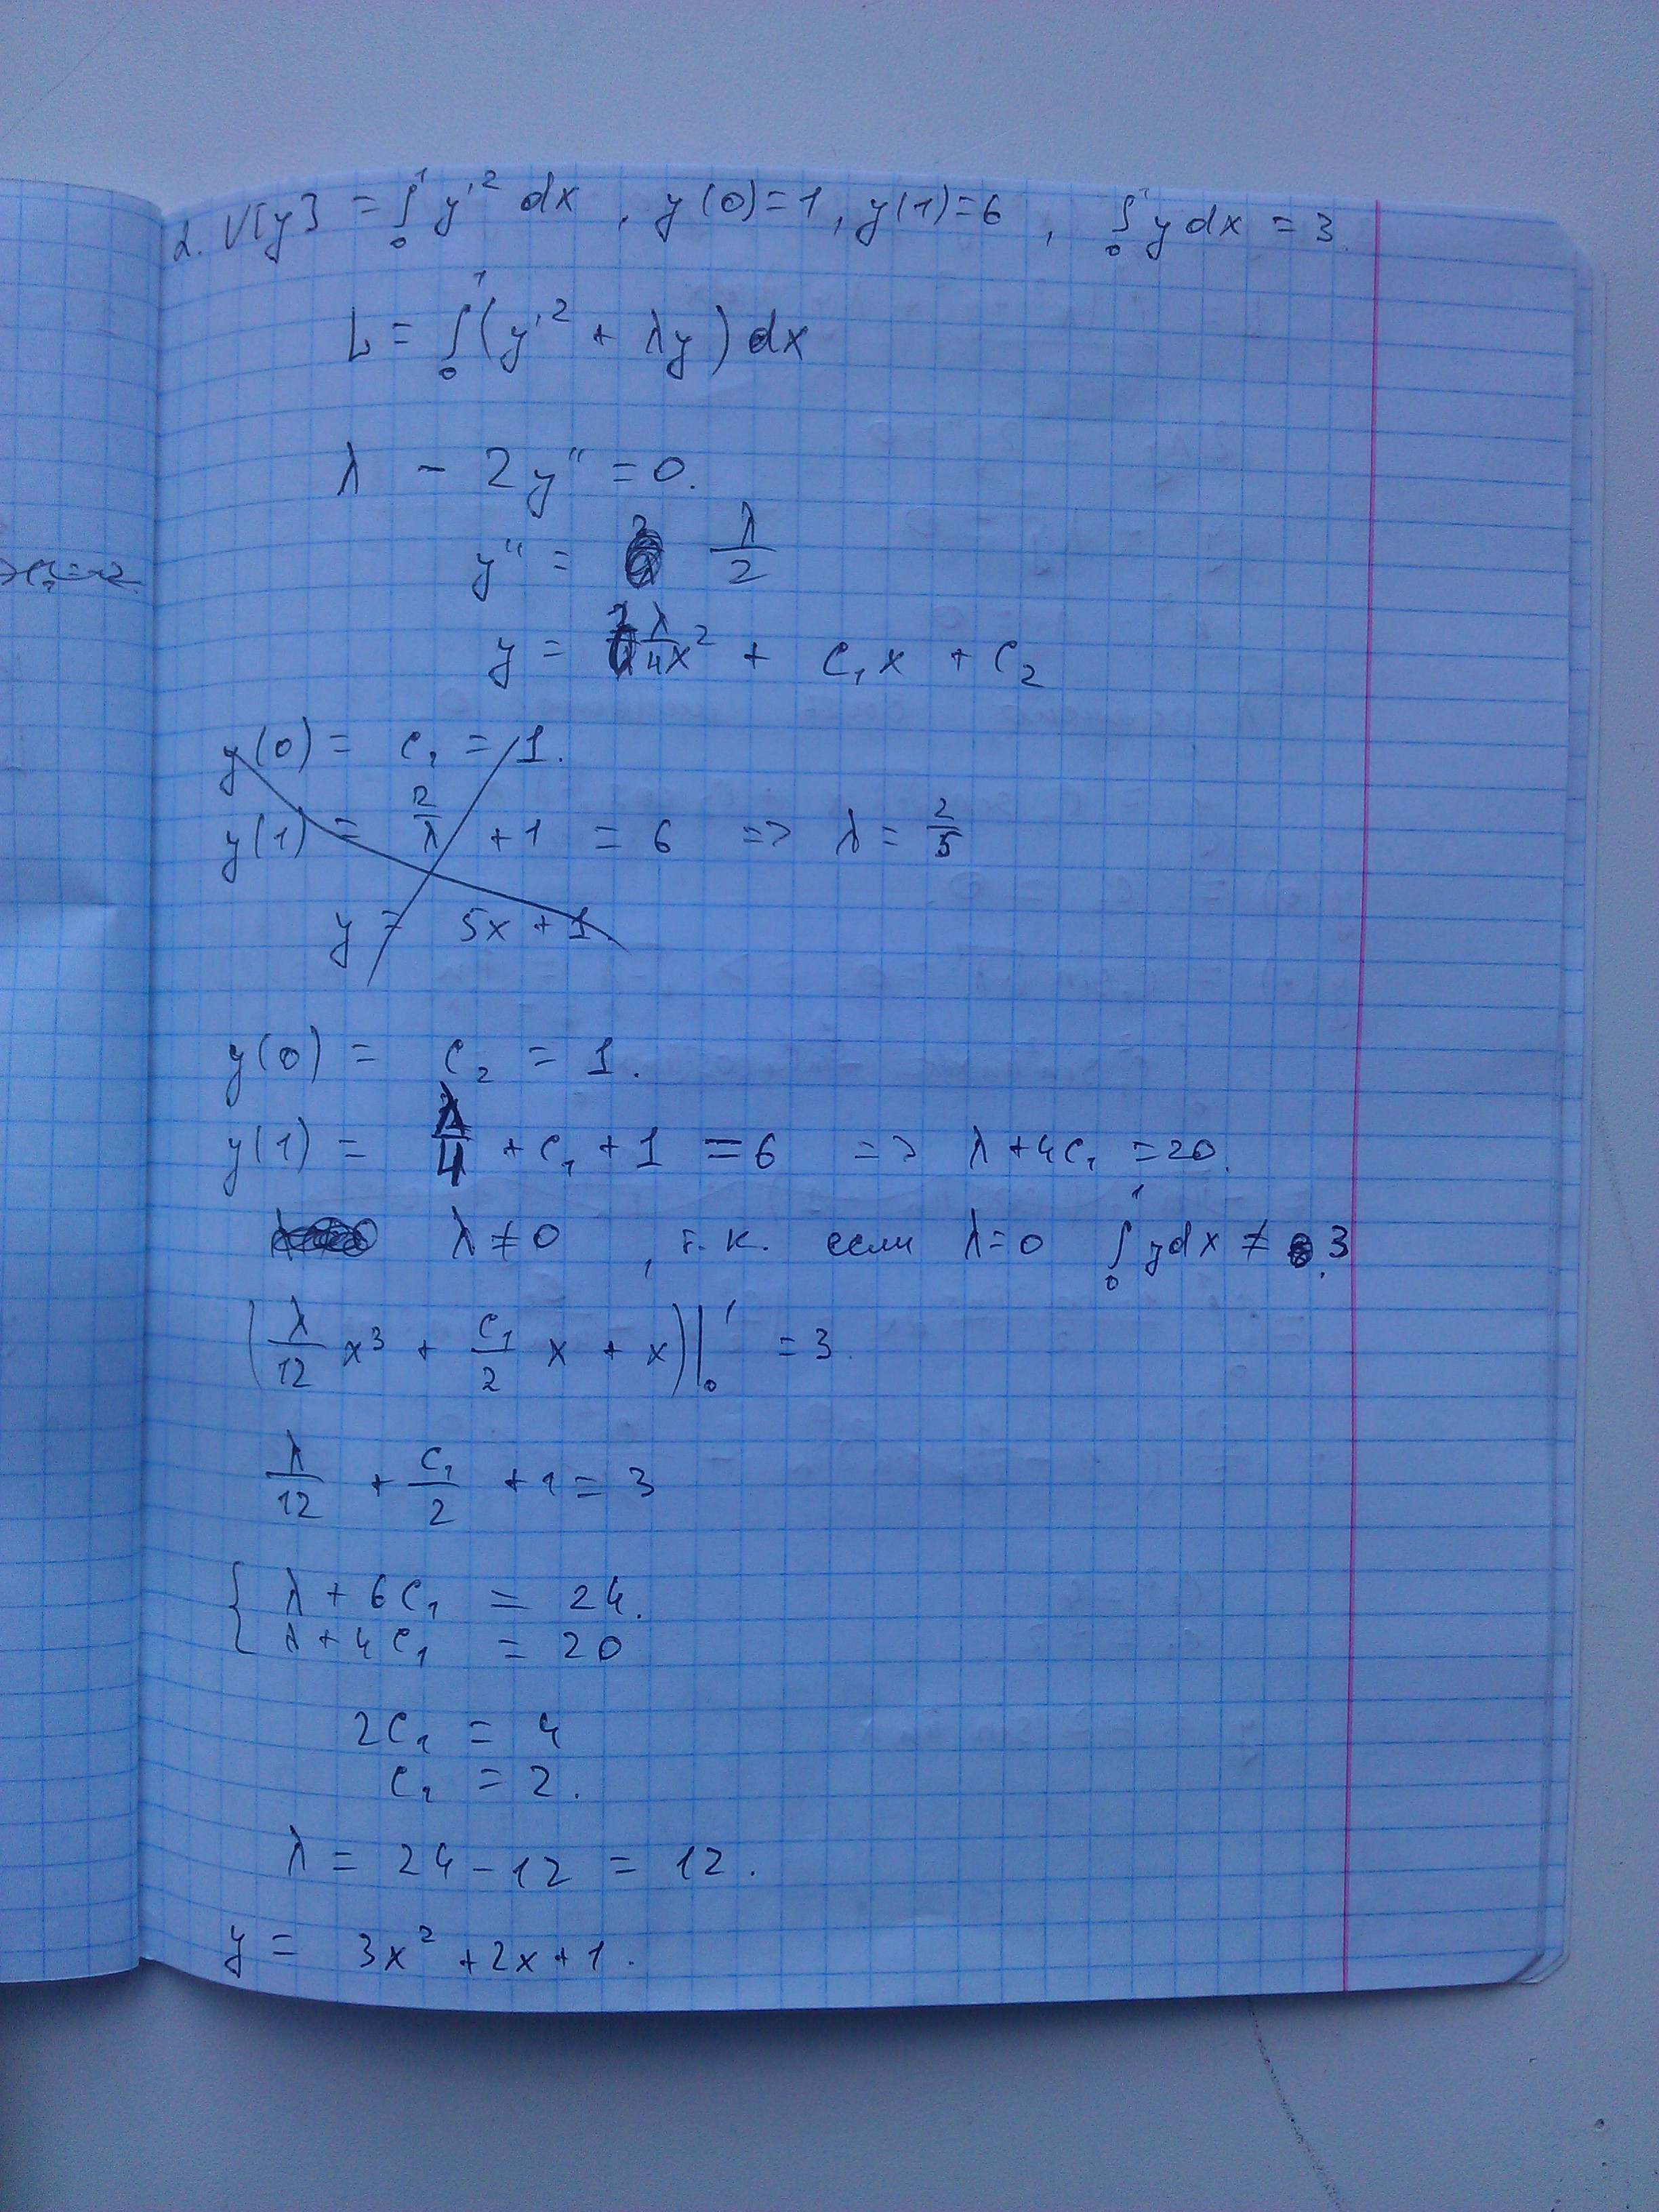 2. V[y] = ∫₀¹ y'² dx , y(0)=1, y(1)=6 , ∫₀¹ y dx = 3.
L = ∫₀¹ (y'² + λy) dx
λ - 2y'' = 0.
y'' = λ/2
y = λ/4 x² + C₁x + C₂
y(0) = C₁ = 1.
y(1) = 2/λ + 1 = 6 => λ = 2/5
y = 5x + 1
y(0) = C₂ = 1.
y(1) = λ/4 + C₁ + 1 = 6 => λ + 4C₁ = 20.
λ ≠ 0 , т.к. если λ = 0 ∫₀¹ y dx ≠ 3.
(λ/12 x³ + C₁/2 x + x)|₀¹ = 3.
λ/12 + C₁/2 + 1 = 3
{ λ + 6C₁ = 24.
λ + 4C₁ = 20
2C₁ = 4
C₁ = 2.
λ = 24 - 12 = 12.
y = 3x² + 2x + 1.